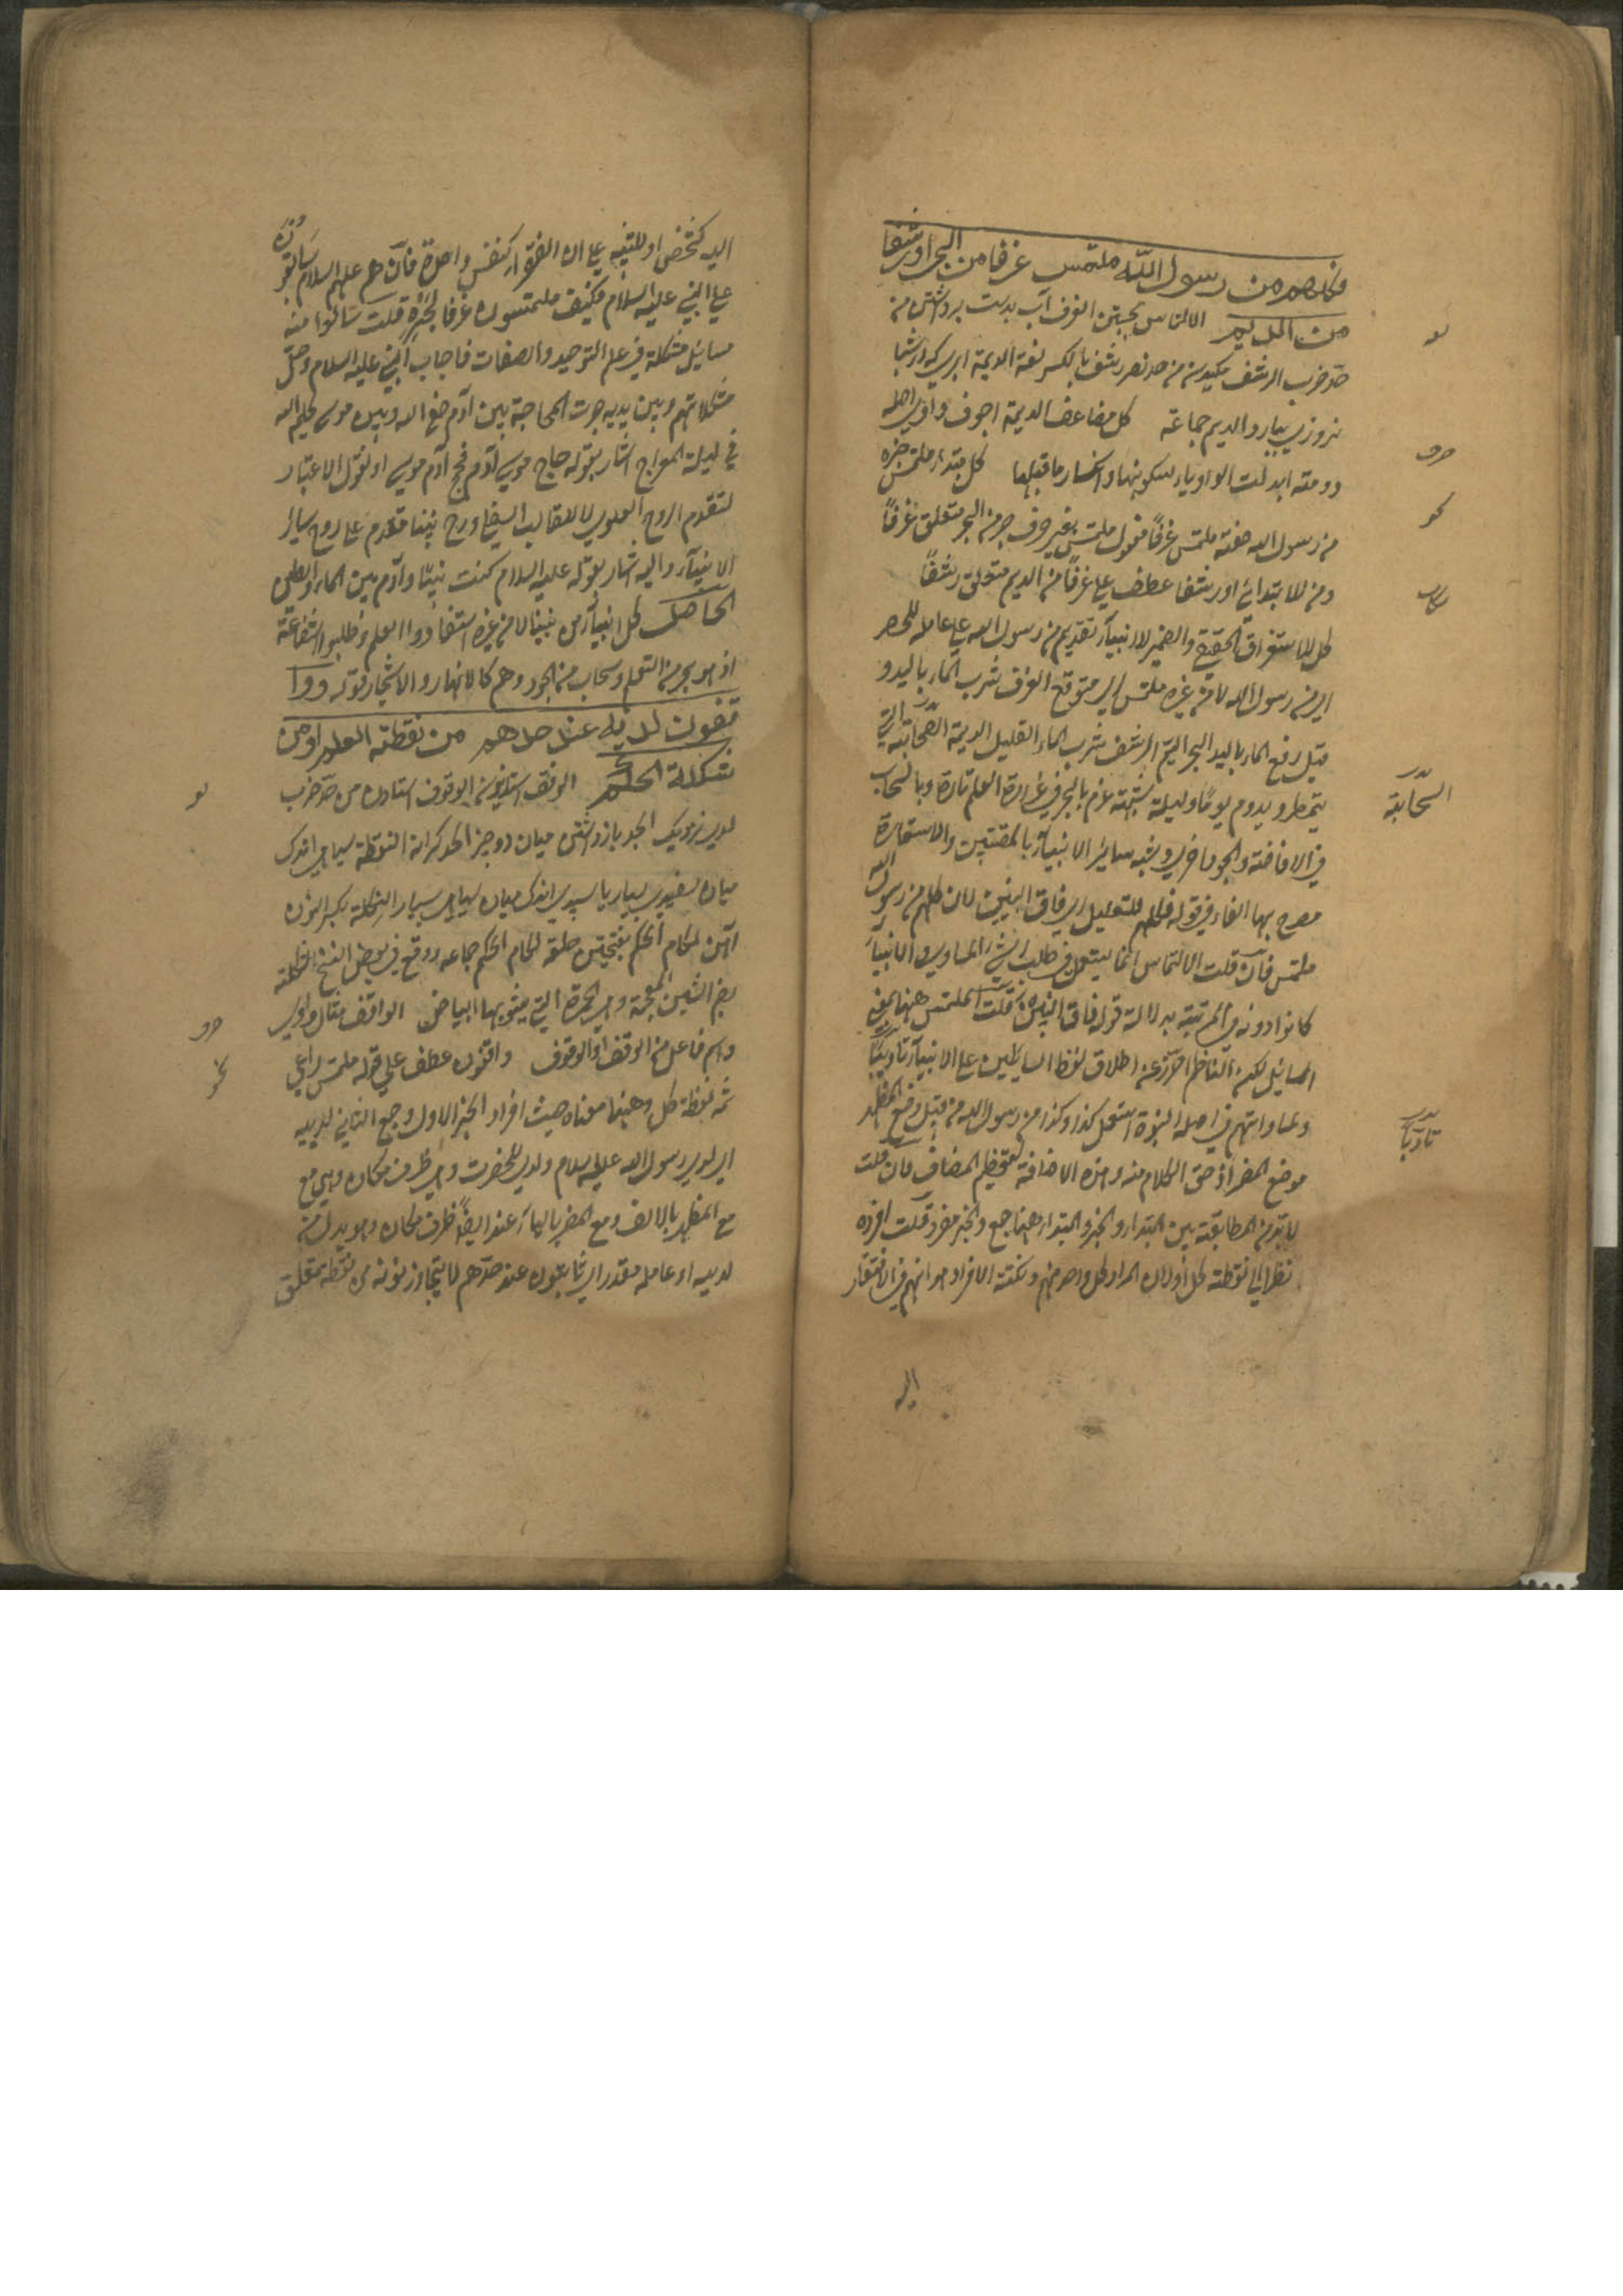 وكلهم من رسول الله ملتمس غرفا من البحر او رشفا
من الديم الالتماس جستن الغرف آب بدست برداشتن من
حد ضرب الرشف مكيدن من حد نصر رشف بالكسر لغة الديمة ابرى كه از شبا
نروزى ببارد الديم جماعة كل مضاعف الديمة اجوف واوى اصله
دومة ابدلت الواو ياء لسكونها وانكسار ما قبلها كل مبتدا ملتمس خبره
من رسول الله صفته ملتمس غرفًا مفعول ملتمس بغير حرف جر من البحر متعلق غرفًا
ومن للابتداء او رشفا عطف على غرفًا من الديم متعلق رشفًا
كل للاستغراق الحقيقى والضمير للانبياء تقديم من رسول الله على عامله للحصر
اى من رسول الله لا من غيره ملتمس اى متوقع الغرف شرب الماء باليد و
قيل رفع الماء باليد البحر اليم الرشف شرب الماء القليل الديمة السحابة التى
تمطر ويدوم يومًا وليلة شبهه عزم بالبحر فى غزارة العلم تارة وبالسحاب
فى الافاضة والجود اخرى وشبه سائر الانبياء بالمقتبس والاستعارة
مصرح بها الفاء فى قوله فكلهم للتعليل اى فاق النبيين لان كلهم من رسول الله
ملتمس فان قلت الالتماس انما يستعمل فى طلب الشئ المساوى والانبياء
كانوا دونه فى المرتبة بدلالة قوله فاق النبيين قلت الملتمس ههنا بمعنى
السائل لكن الناظم احترز عن اطلاق لفظ السائلين على الانبياء تأدبًا
ولمساواتهم فى اصل النبوة استعمل كذا وكذا من رسول الله من قبيل وضع المظهر
موضع المضمر اذ حق الكلام منه وهذه الاضافة لتعظيم المضاف فان قلت
لا بد من المطابقة بين المبتدا والخبر والمبتدا ههنا جمع والخبر مفرد قلت افرده
نظرا الى لفظة كل او لان المراد كل واحد منهم ونكتة الافراد هو انهم فى الافتقار
اليه
لغ
صرف
نحو
بيان
السحابة
تأدبًا
اليه كشخص او للتنبيه على ان الفقراء كنفس واحدة فان هم عليهم السلام سابقون
على النبى عليه السلام فكيف ملتمسون غرفا لبحره قلت سالوا منه
مسائل مشكلة فى علم التوحيد والصفات فاجاب النبى عليه السلام وحل
مشكلاتهم وبين يديه جرت المحاجة بين آدم صفى الله وبين موسى كليم الله
فى ليلة المعراج اشار بقوله حاج موسى آدم فحج آدم موسى او نقول الاعتبار
لتقدم الروح العلوى لا للقالب السفلى وروح نبينا مقدم على روح سائر
الانبياء واليه اشار بقوله عليه السلام كنت نبيًا وآدم بين الماء والطين
الحاصل كل انبياء من نبينا لا من غيره استفادوا العلم وطلبوا الشفاعة
اذ هو بحر من العلم وسحاب من الجود وهم كالانهار والاشجار قوله ووا
قفون لديه عند حدهم من نقطة العلم او من
شكلة الحكم الوقف استانيدن الوقوف استادن من حد ضرب
لدى نزديك الحد بازداشتن ميان دو چيز الحد كرانه النقطة سياهى اندك
ميان سفيدى بسيار يا سپيدى اندك ميان سياهى بسيار الشكلة بكسر الشين
آهن لكام الحكم بفتحتين حلقه لكام الحكم جماعه ووقع فى بعض النسخ الشكلة
بضم الشين المعجمة وهى الحمرة التى يشوبها البياض الواقف مثال واوى
واسم فاعل من الوقف او الوقوف واقفون عطف على قوله ملتمس راعى
ثمه لفظة كل وههنا معناه حيث افراد الخبر الاول وجمع الثانى لديه
اى لدى رسول الله عليه سلام ولدى للحضرت وهى ظرف مكان وهى مع
مع المظهر بالالف ومع المضمر بالياء عند ايضًا ظرف مكان وهو بدل من
لديه او عامله مقدر اى ثابتون عند حدهم لا يتجاوزونه من نقطة متعلق
لغ
صرف
نحو